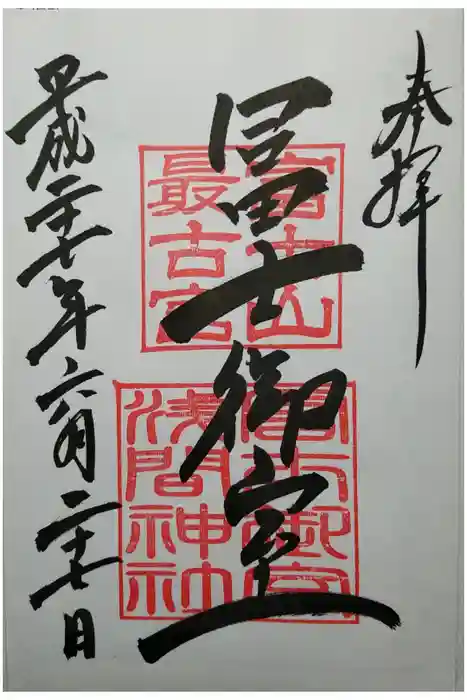 奉拝
冨士御室
富士山
最古宮
冨士御室
浅間神社
平成二十七年六月二十七日